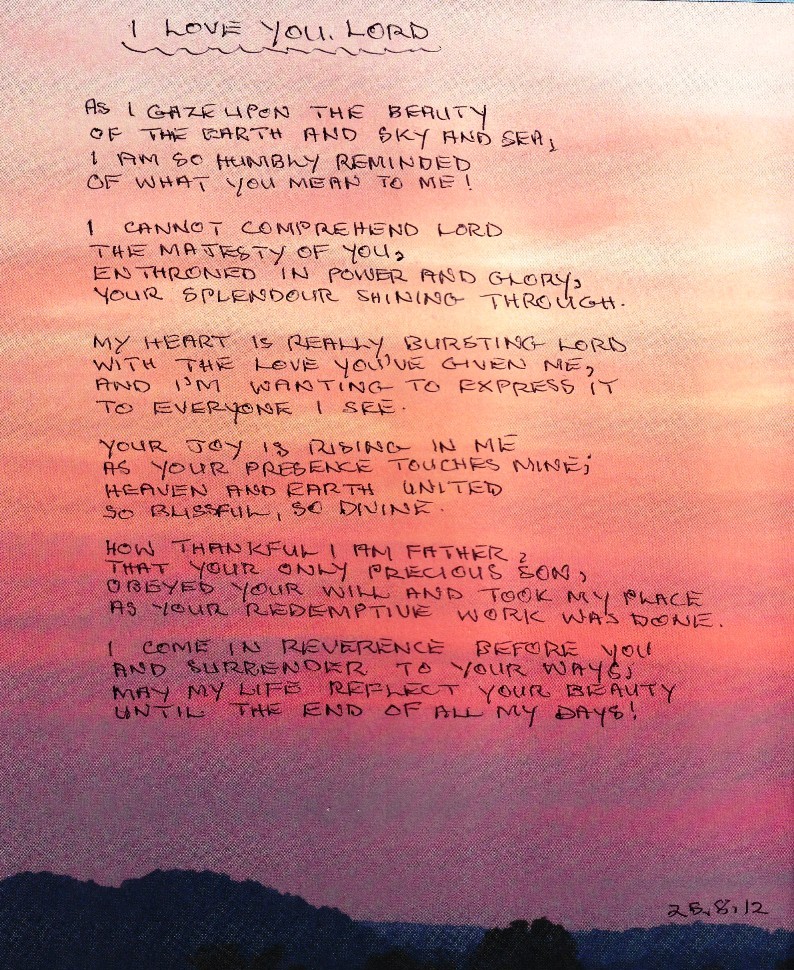 I LOVE YOU. LORD
AS I GAZE UPON THE BEAUTY
OF THE EARTH AND SKY AND SEA,
I AM SO HUMBLY REMINDED
OF WHAT YOU MEAN TO ME!
I CANNOT COMPREHEND LORD
THE MAJESTY OF YOU,
ENTHRONED IN POWER AND GLORY,
YOUR SPLENDOUR SHINING THROUGH.
MY HEART IS REALLY BURSTING LORD
WITH THE LOVE YOU'VE GIVEN ME,
AND I'M WANTING TO EXPRESS IT
TO EVERYONE I SEE.
YOUR JOY IS RISING IN ME
AS YOUR PRESENCE TOUCHES MINE;
HEAVEN AND EARTH UNITED
SO BLISSFUL, SO DIVINE.
HOW THANKFUL I AM FATHER,
THAT YOUR ONLY PRECIOUS SON,
OBEYED YOUR WILL AND TOOK MY PLACE
AS YOUR REDEMPTIVE WORK WAS DONE.
I COME IN REVERENCE BEFORE YOU
AND SURRENDER TO YOUR WAYS;
MAY MY LIFE REFLECT YOUR BEAUTY
UNTIL THE END OF ALL MY DAYS!
25.8.12